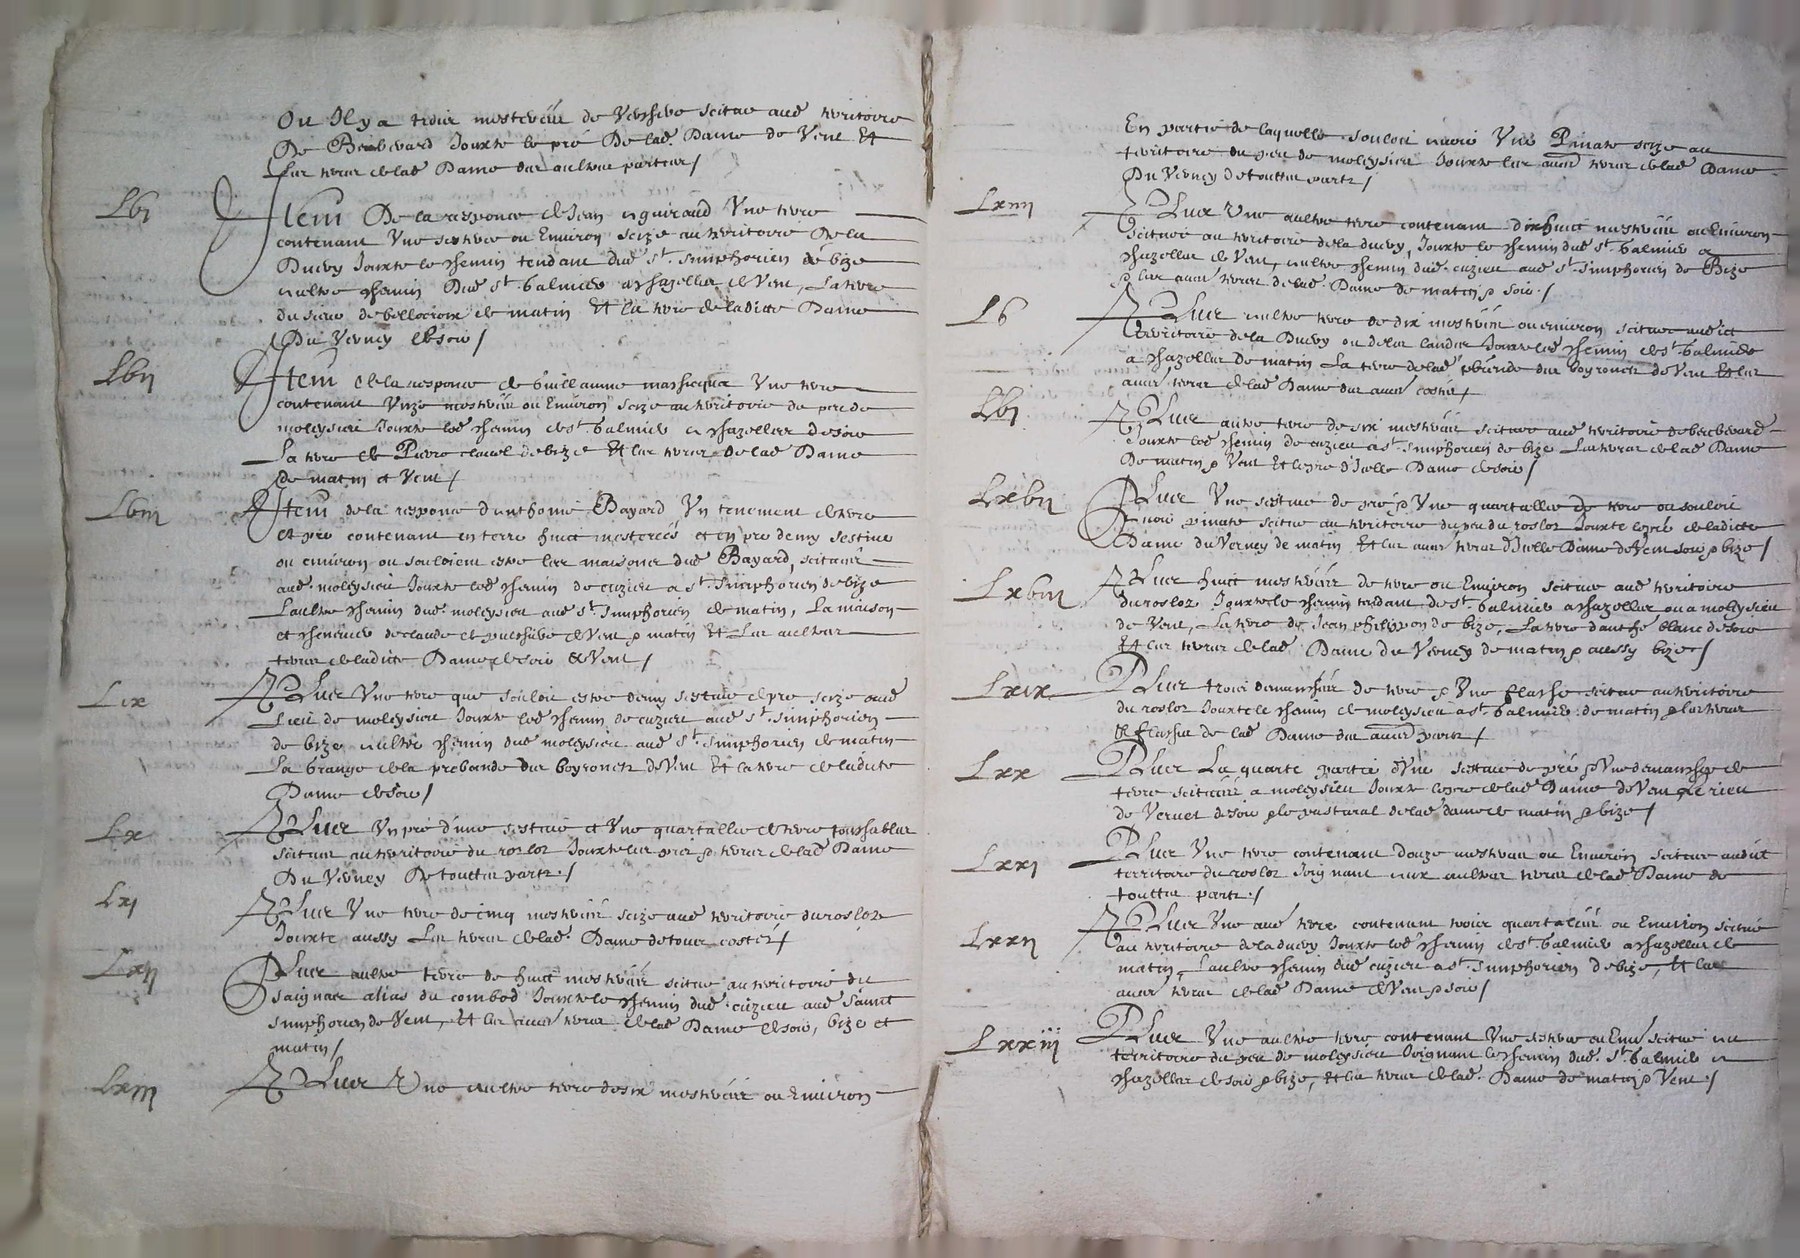 Ou Il y a trois mesterées de Vershere scituee aud territoire
De Beulevard Jouxte le pré De lad Dame de Vent Et
Les terres de lad Dame des aultres parties /
Lvi Item De la responce de Jean Une terre
contenant Une sestiere ou Environ Seize au territoire De la
Duery Jouxte le chemin tendant dud St Simphorien de bize
aultre chemin Dud St Galmier a chazelles de Vent, La terre
du sieur de bellecroix de matin Et la terre de ladicte Dame
Du Verney de soir /
Lvii Item de la responce de Guillaume Une terre
contenant Unze mesterées ou Environ Seize au territoire du peu de
moleysieu Jouxte led chemin de St Galmier a chazelles de soir
La terre de Pierre clauel de bize Et les terres de lad Dame
de matin et Vent /
Lviii Item de la responce d'anthoine Bayard Un tenement de terre
et pré contenant en terre huict mesterées et en pré demy sestiue
ou environ ou souloient estre les maisons dud Bayard, scituées
aud moleysieu Jouxte led chemin de cuzieu a St Simphorien de bize
L'aultre chemin dud moleysieu aud St Simphorien de matin, La maison
et de claude et de Vent & matin Et Les aultres
terres de ladicte Dame de soir & Vent /
Lix Plus Une terre que souloit estre demy sestiue de pré seize aud
Lieu de moleysieu Jouxte led chemin de cuzieu aud St Simphorien
de bize aultre chemin dud moleysieu aud St Simphorien de matin
La Grange de la prebande des boyronetz de Vent Et la terre de ladicte
Dame de soir /
Lx Plus Un pré d'une sestiue et Une quartallée de terre
scitués au territoire du rosloz Jouxte les prés & terres de lad Dame
Du Verney De touttes parts /
Lxj Plus Une terre de cinq mesterées seize aud territoire du rosloz
Jouxte aussy Les terres de lad Dame de tous costés /
Lxij Plus aultre terre de huict mesterées scitue au territoire du
saignat alias du combod Jouxte le chemin dud cuzieu aud Sainct
Simphorien de Vent, Et les aultres terres de lad Dame de soir, bize et
matin /
Lxiij Plus Une aultre terre de six mesterées ou Environ
En partie de laquelle souloit avoir Une Pinate seize au
territoire du peu de moleysieu Jouxte les aultres terres de lad Dame
Du Verney de touttes parts /
Lxiiij Plus Une aultre terre contenant dixhuict mesterées ou Environ
scituée au territoire de la duery, Jouxte le chemin dud St Galmier a
chazelles de Vent, aultre chemin dud cuzieu aud St Simphorien de Bize
& les aultres terres de lad Dame de matin & soir /
Lv Plus aultre terre de dix mesterées ou environ scituée audict
territoire de la Duery ou de les Jouxte led chemin de St Galmier
a chazelles de matin La terre de lad prebande des boyronetz de Vent Et les
aultres terres de lad Dame des aultres costés /
Lvj Plus aultre terre de six mesterées scituée aud territoire de beulevard
Jouxte led chemin de cuzieu a St Simphorien de bize Les terres de lad Dame
De matin & Vent Et le pré d'Icelle Dame de soir /
Lxvij Plus Une sestiue de pré & Une quartallée de terre ou souloit
avoir pinate scitue au territoire du peu du rosloz Jouxte le pré de ladicte
Dame du Verney de matin Et les aultres terres d'Icelle Dame de Vent soir & bize /
Lxviij Plus huict mesterées de terre ou Environ scitue aud territoire
du rosloz Jouxte le chemin tendant de St Galmier a chazelles ou a moleysieu
de Vent, La terre de Jean philippon de bize, La terre d'anthe blanc de soir
Et les terres de lad Dame du Verney de matin & aussy bize /
Lxix Plus trois de terre & Une flasche scitue au territoire
du rosloz Jouxte le chemin de moleysieu a St Galmier de matin & les terres
& flaches de lad Dame des aultres parts /
Lxx Plus La quarte partie d'Une sestiue de pré & Une de
terre scituées a moleysieu Jouxte le pré de lad Dame de Vent,
de Vernet de soir & le pastural de lad dame de matin & bize /
Lxxj Plus Une terre contenant Douze mesterées ou Environ scituee audict
territoire du rosloz Joignant aux aultres terres de lad Dame de
touttes parts /
Lxxij Plus Une aultre terre contenant trois quartalées ou Environ scitue
au territoire de la duery Jouxte led chemin de St Galmier a chazelles de
matin, L'aultre chemin dud cuzieu a St Simphorien de bize, Et les
aultres terres de lad Dame de Vent & soir /
Lxxiij Plus Une aultre terre contenant Une sestiere ou Environ scitue au
territoire du peu de moleysieu Joignant le chemin dud St Galmier a
chazelles de soir & bize, Et les terres de lad Dame de matin & Vent /